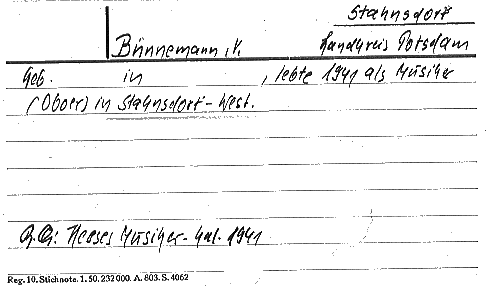 Stahnsdorf
Bünnemann, K. Landkreis Potsdam
Geb. in , lebte 1941 als Musiker
(Oboer) in Stahnsdorf-West.
Hesses Musiker-Kal. 1941
Reg. 10. Stichnote. 1. 50. 232 000. A. 803. S. 4062